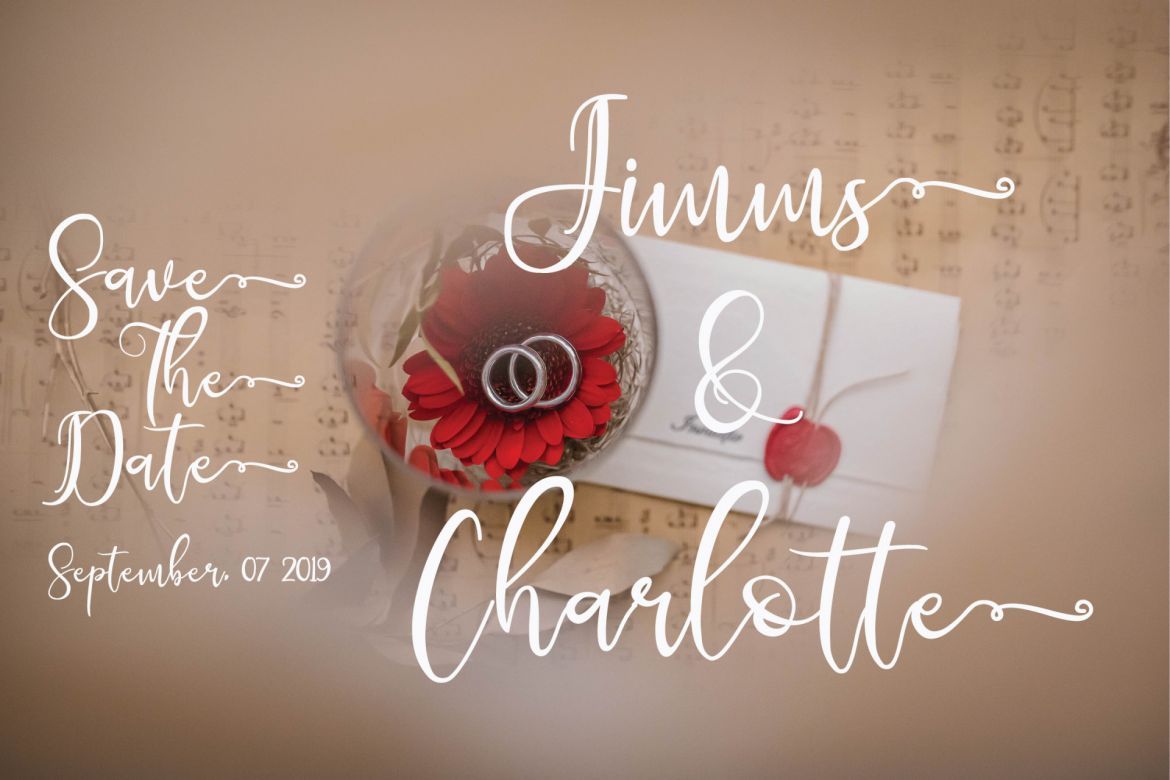 Save
The
Date
September, 07 2019
Jimms
&
Charlotte